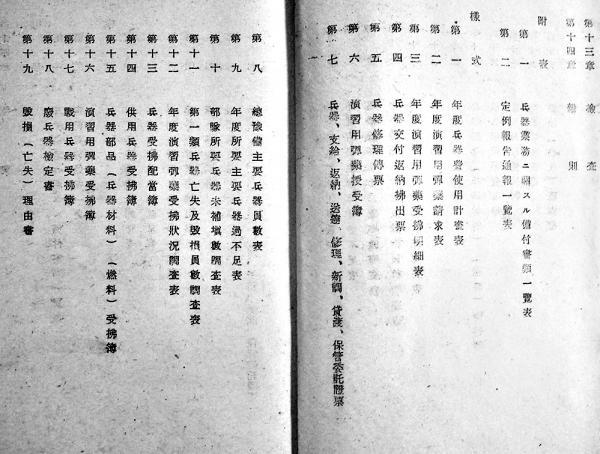 第十三章 檢査
第十四章 雜則
附表
第一 兵器業務ニ關スル備付書類一覽表
第二 定例報告通報一覽表
樣式
第一 年度兵器費使用計畫表
第二 年度演習用彈藥請求表
第三 年度演習用彈藥受拂明細表
第四 兵器交付返納拂出票
第五 兵器修理傳票
第六 演習用彈藥授受簿
第七 兵器、支給、返納、送達、修理、新調、貸渡、保管委託證票
一
第八 總豫備主要兵器員數表
第九 年度所要主要兵器過不足表
第十 部隊所要兵器未補塡數調査表
第十一 第一類兵器亡失及毀損員數調査表
第十二 年度演習用彈藥受拂狀況調査表
第十三 兵器受拂配當簿
第十四 供用兵器受拂簿
第十五 兵器部品(兵器材料)(燃料)受拂簿
第十六 演習用彈藥受拂簿
第十七 戰用兵器受拂簿
第十八 廢兵器檢定書
第十九 毀損(亡失)理由書